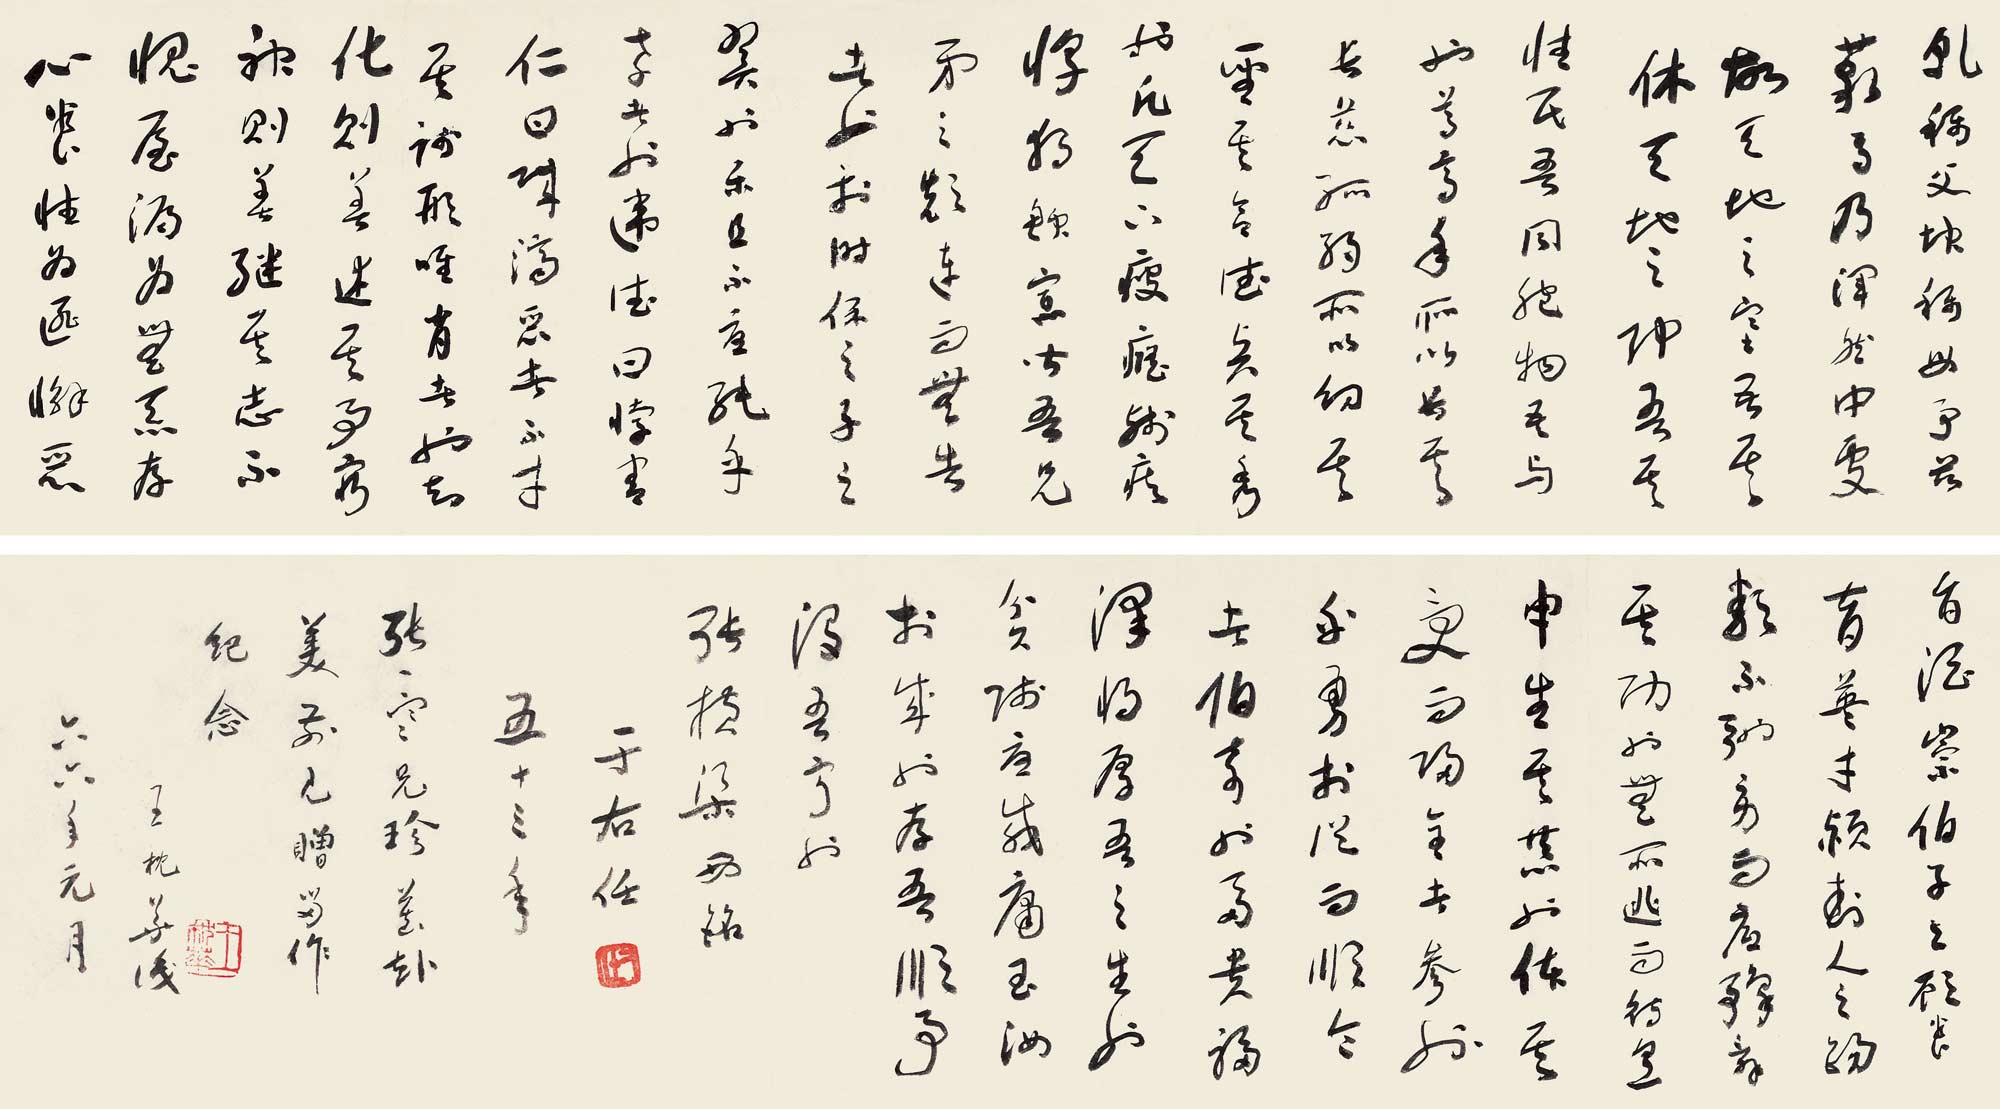 乾稱父坤稱母予茲
藐焉乃渾然中處
故天地之塞吾其
休天地之帥吾其
性民吾同胞物吾与
也尊高年所以長其
長慈孤弱所以幼其
聖其合德賢其秀
也凡天下疲癃殘疾
惸独鰥寡皆吾兄
弟之顛連而無告
者也于時保之子之
翼也樂且不憂純乎
孝者也違德曰悖害
仁曰賊濟惡者不才
其踐形唯肖者也知
化則善述其事窮
神則善継其志不
愧屋漏為無忝存
心養性為匪懈惡
旨酒崇伯子之顧養
育英才潁封人之錫
類不弛勞而底豫舜
其功也無所逃而待烹
申生其恭也体其
受而歸全者參
乎勇於從而順令
者伯奇也富貴福
澤將厚吾之生也
貧賤憂戚庸玉汝
於成也存吾順事
沒吾寧也
張橫渠西銘
于右任
五十三年
張一寒兄珍藏赴
美前兄贈留作
紀念
王枕華識
六六年元月